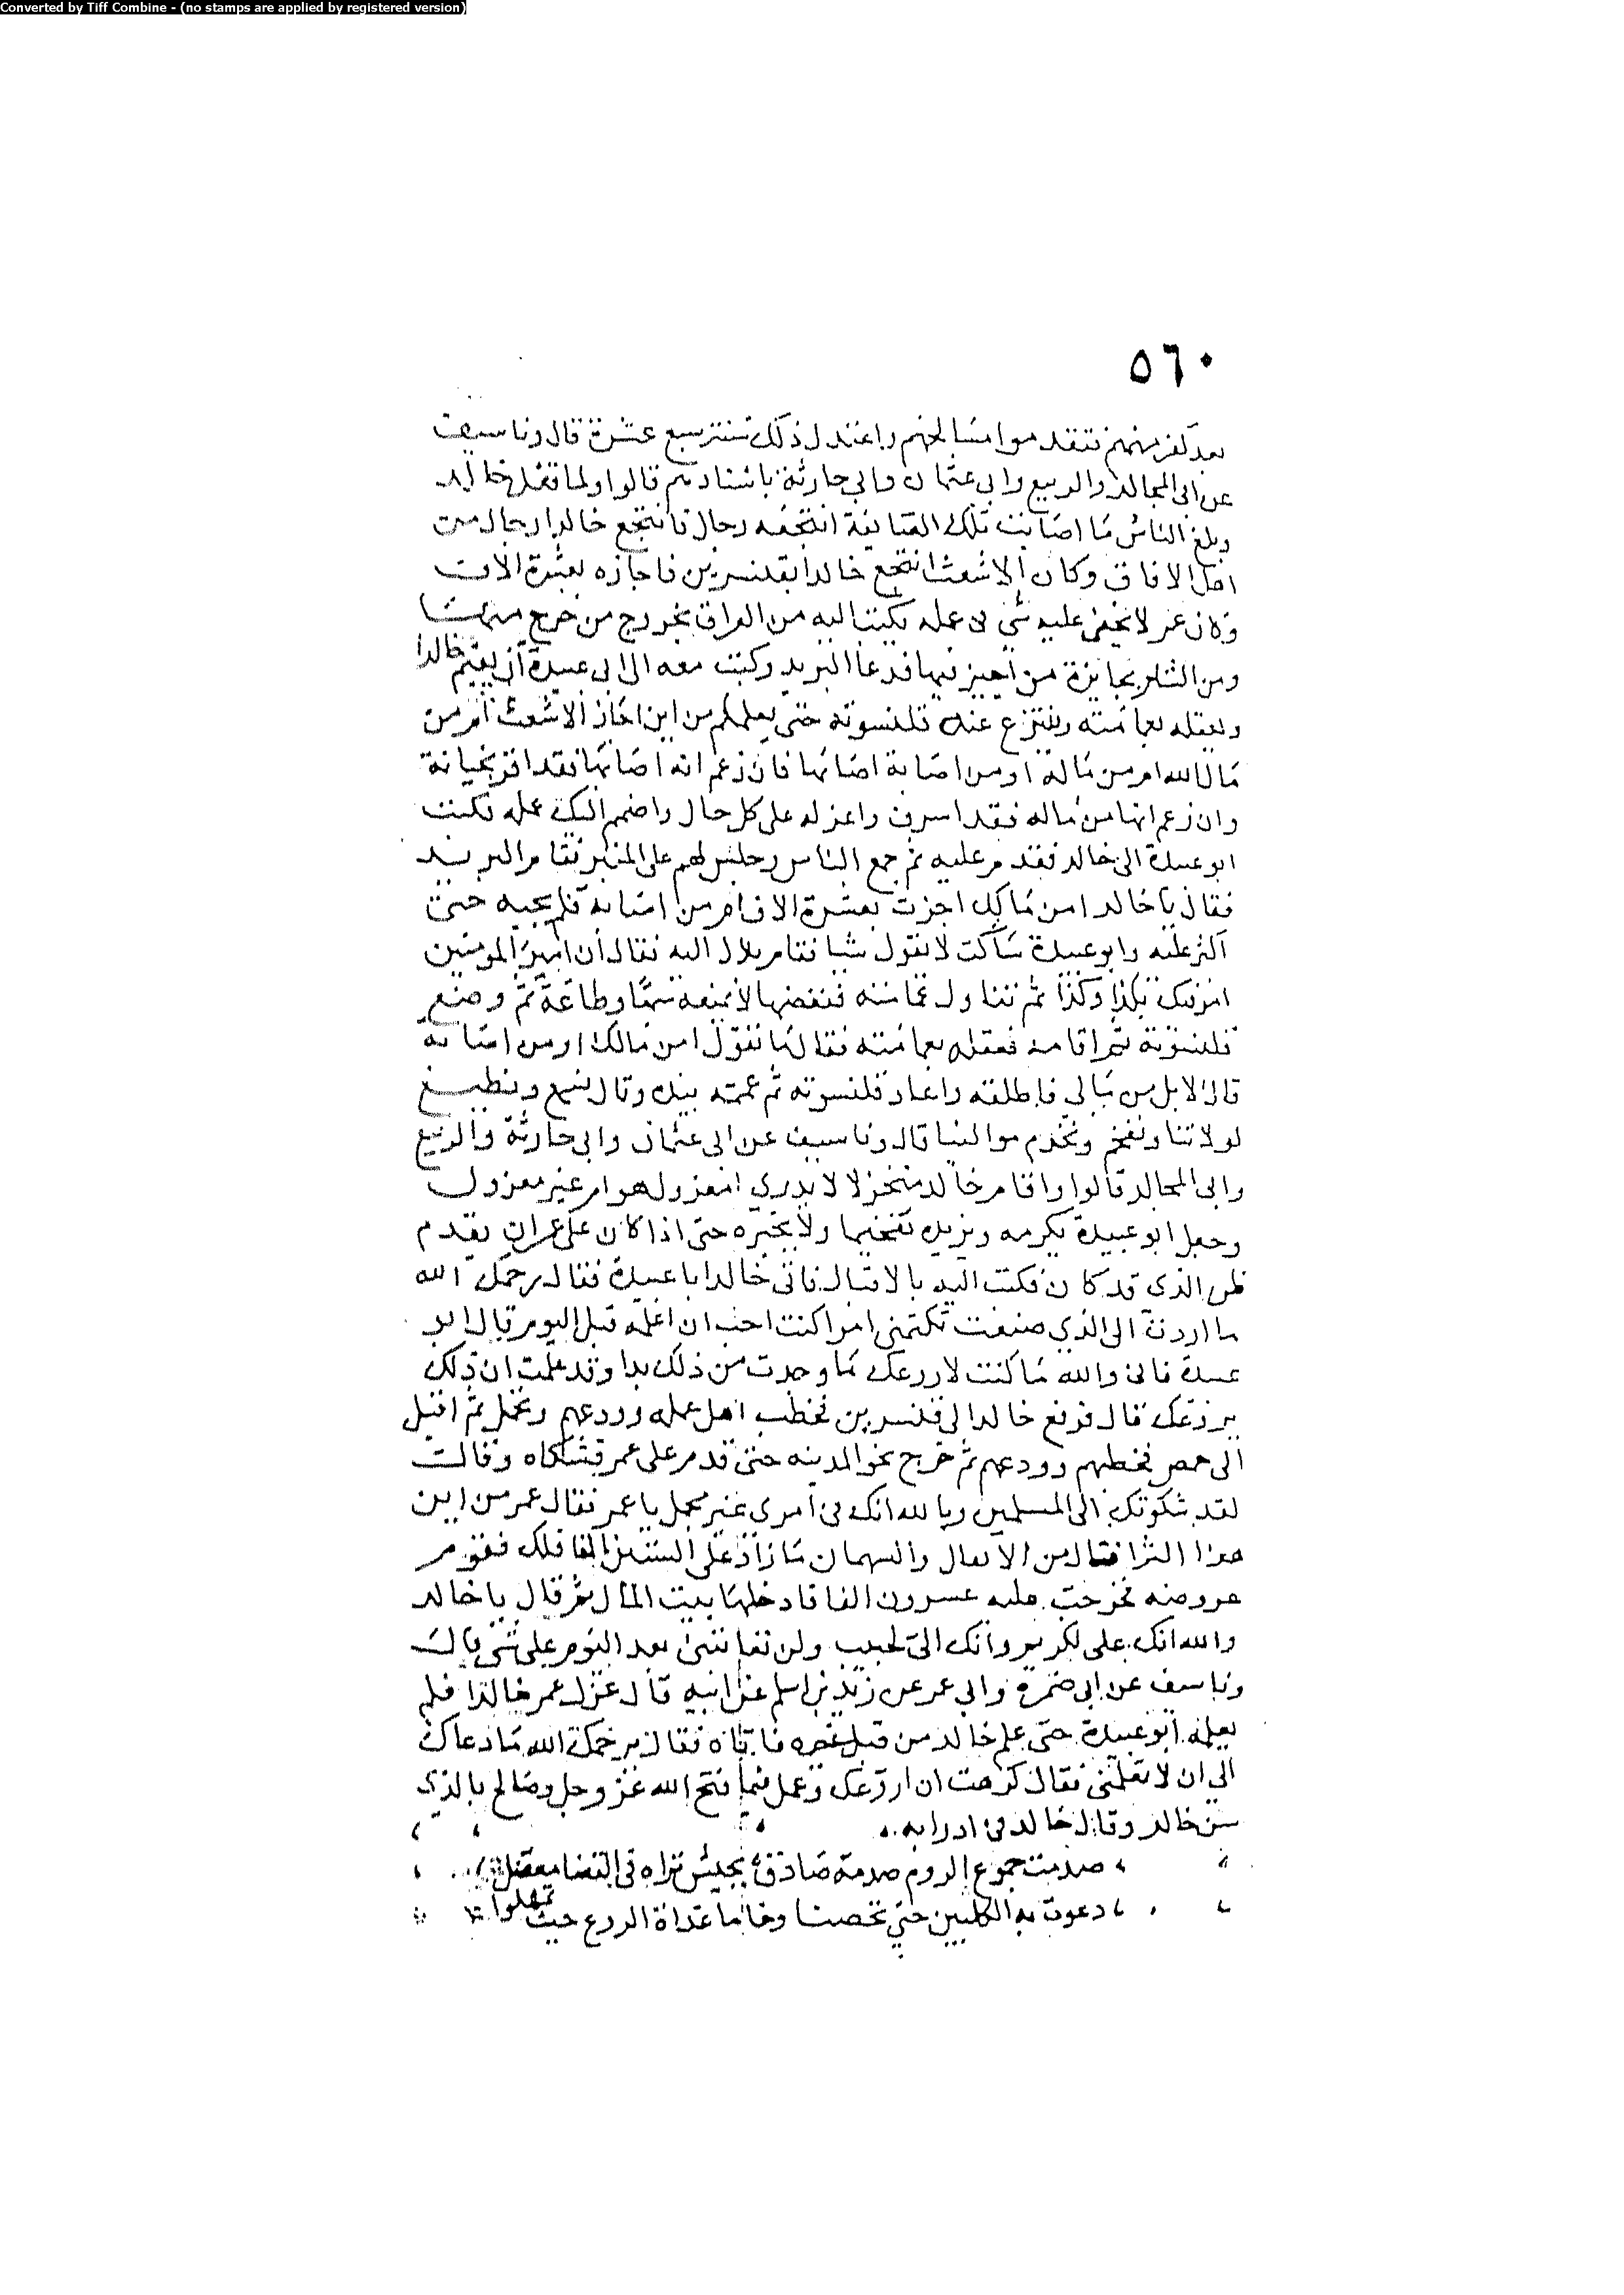 Converted by Tiff Combine - (no stamps are applied by registered version)
٥٦٠
بعد كفر منهم فتقدموا مسالحهم واعتدل ذلك سنة سبع عشرة قال ونا سيف
عن ابي المجالد والربيع وابي عثمان وابي حارثة باسنادهم قالوا ولما قفل خالد
وبلغ الناس ما اصابت تلك الصايفة انتجعه رجال فانتجع خالدا رجال من
اهل الافاق وكان الاشعث انتجع خالدا بقنسرين فاجازه بعشرة الاف
وكان عمر لا يخفى عليه شي في عمله يكتب اليه من العراق بخروج من خرج منها
ومن الشام بجايزة من اجيز فيها فدعا البريد وكتب معه الى ابي عبيدة ان يقيم خالدا
ويعقله بعمامته وينتزع عنه قلنسوته حتى يعلمكم من اين اجاز الاشعث امن
مال الله ام من ماله او من اصابة اصابها فان زعم انه اصابها فقد اقر بخيانة
وان زعم انها من ماله فقد اسرف واعزله على كل حال واضمم اليك عمله فكتب
ابو عبيدة الى خالد فقدم عليه ثم جمع الناس وجلس لهم على المنبر فقام البريد
فقال يا خالد امن مالك اجزت بعشرة الاف ام من اصابة فلم يجبه حتى
اكثر عليه وابو عبيدة ساكت لا يقول شيا فقام بلال اليه فقال ان امير المومنين
امر فيك بكذا وكذا ثم تناول عمامته فنفضها لا يمنعه سمعا وطاعة ثم وضع
قلنسوته ثم اقامه فعقله بعمامته فقال ما تقول امن مالك ام من اصابة
قال لا بل من مالي فاطلقه واعاد قلنسوته ثم عممه بيده وقال نسمع ونطيع
لولاتنا ونفخم ونخدم موالينا قال ونا سيف عن ابي عثمان وابي حارثة والربيع
وابي المجالد قالوا واقام خالد منخزلا لا يدري امعزول هو ام غير معزول
وجعل ابو عبيدة يكرمه ويزيده تفخيما ولا يخبره حتى اذا كان على عمر ان يقدم
ظن الذي قد كان فكتب اليه بالاقبال فاتى خالد ابا عبيدة فقال رحمك الله
ما اردت الى الذي صنعت تكتمني امرا كنت احب ان اعلمه قبل اليوم قال ابو
عبيدة فاني والله ما كنت لاروعك ما وجدت من ذلك بدا وقد علمت ان ذلك
يروعك قال فرجع خالد الى قنسرين فخطب اهل عمله وودعهم وتحمل ثم اقبل
الى حمص فخطبهم وودعهم ثم خرج نحو المدينه حتى قدم على عمر فشكاه وقال
لقد شكوتك الى المسلمين وبالله انك في امري غير مجمل يا عمر فقال عمر من اين
هذا الثرا فقال من الانفال والسهمان ما زاد على الستين الفا فلك فقوم
عروضه فخرجت عليه عشرون الفا فادخلها بيت المال ثم قال يا خالد
والله انك علي لكريم وانك الي لحبيب ولن تعاتبني بعد اليوم على شي قال
ونا سيف عن ابي ضمرة وابي عمر عن زيد بن اسلم عن ابيه قال عزل عمر خالدا فلم
يعلمه ابو عبيدة حتى علم خالد من قبل غيره فاتاه فقال يرحمك الله ما دعاك
الى ان لا تعلمني فقال كرهت ان اروعك وعمل فيما فتح الله عز وجل وصالح بالذي
سن خالد وقال خالد في ادرابه
صدمت جموع الروم صدمة صادق بجيش تراه في الفضا معضل
دعوت به الكلبين حتى تحصنا وخاما غداة الروع حيث تمهلوا